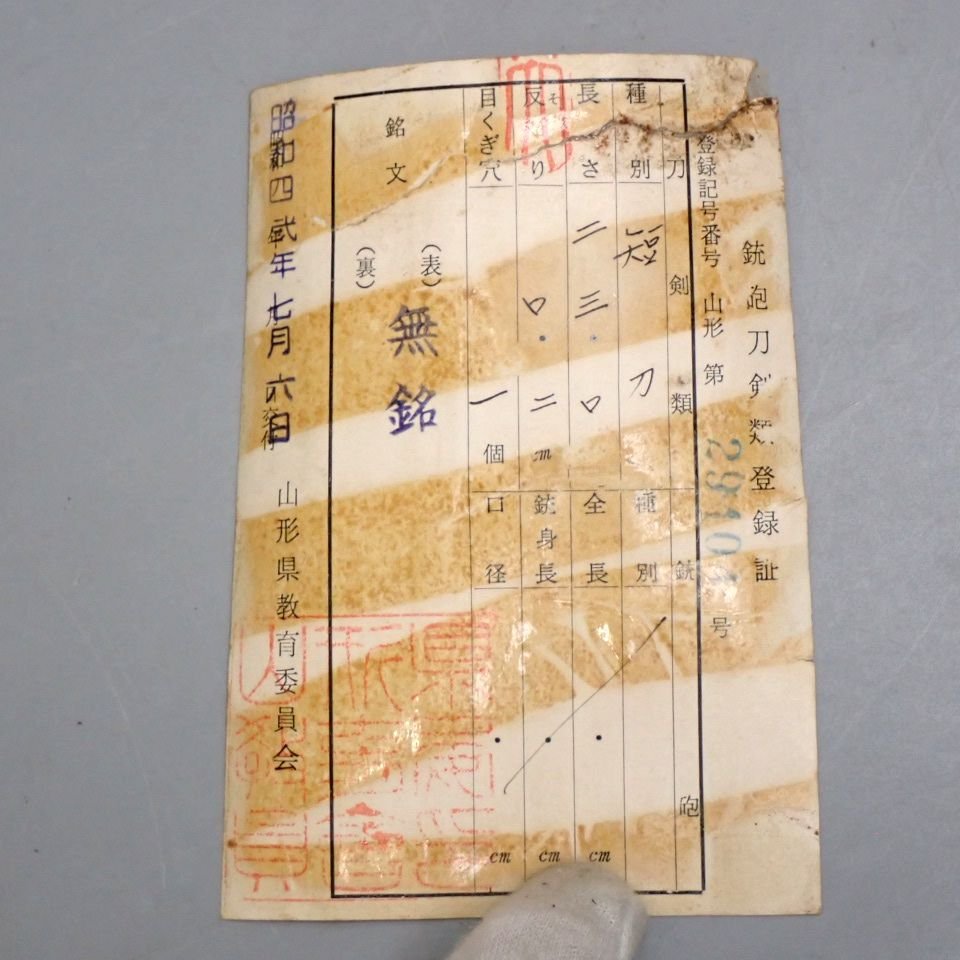 銃砲刀剣類登録証
登録記号番号 山形 第 号
刀剣類
種別 短刀
長さ 二三.〇
反り そ 〇.二 cm
目くぎ穴 一個
銘文
(表)
無銘
(裏)
銃砲
種別
全長 . cm
銃身長 . cm
口径 . cm
昭和四弐年七月六日
交付
山形県教育委員会